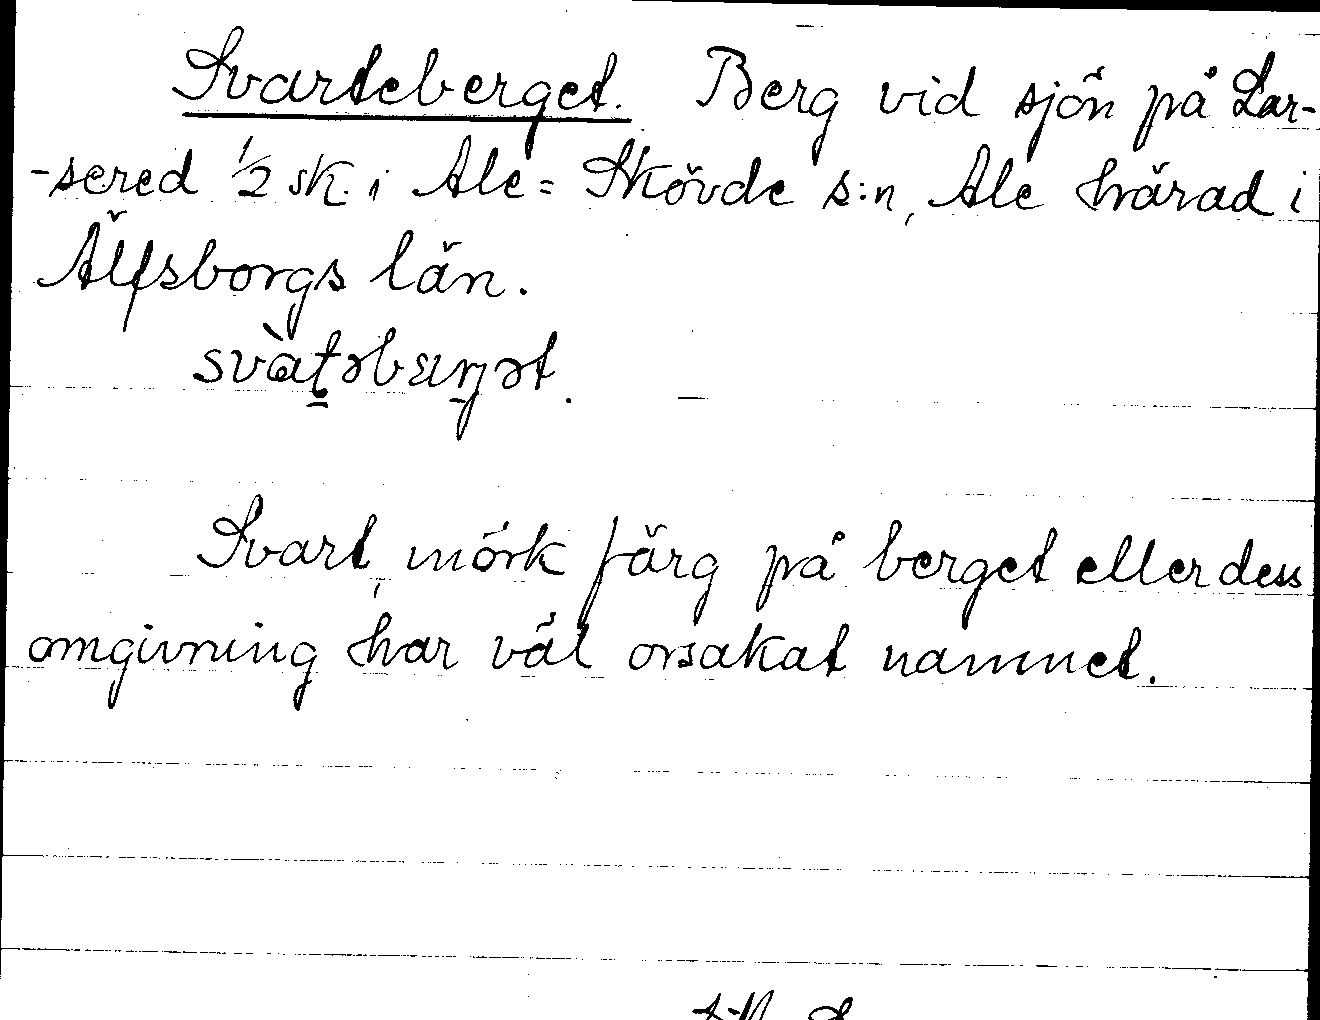 Svarteberget. Berg vid sjön på Lar-
-sered 1/2 sk. i Ale=Skövde s:n, Ale härad i
Älfsborgs län.
svàt̠əbæŋ̠ət.
Svart, mörk färg på berget eller dess
omgivning har väl orsakat namnet.